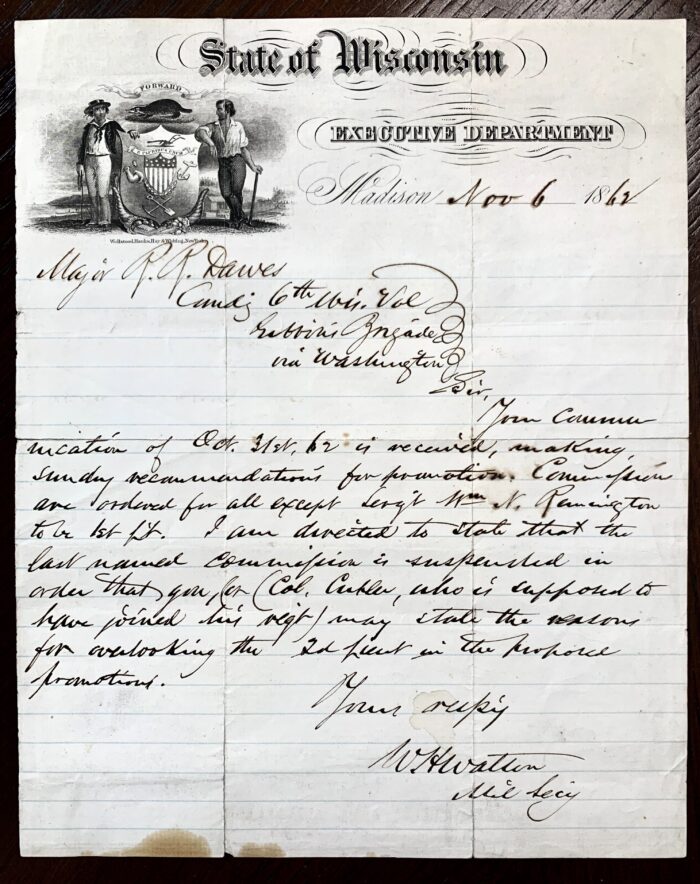 State of Wisconsin
FORWARD
EXECUTIVE DEPARTMENT
Madison Nov 6 1862
Major R. R. Dawes
Comdg 6th Wis. Vol
Gibbon's Brigade
via Washington
Sir,
Your commu
nication of Oct. 31st, 62 is received, making
sundry recommendations for promotion. Commissions
are ordered for all except Sergt Wm N. Remington
to be 1st Lt. I am directed to state that the
last named commission is suspended in
order that you, (or Col. Cutler, who is supposed to
have joined his regt) may state the reasons
for overlooking the 2d Lieut in the proposed
promotions.
Yours respy
W H Watson
Mil Secy